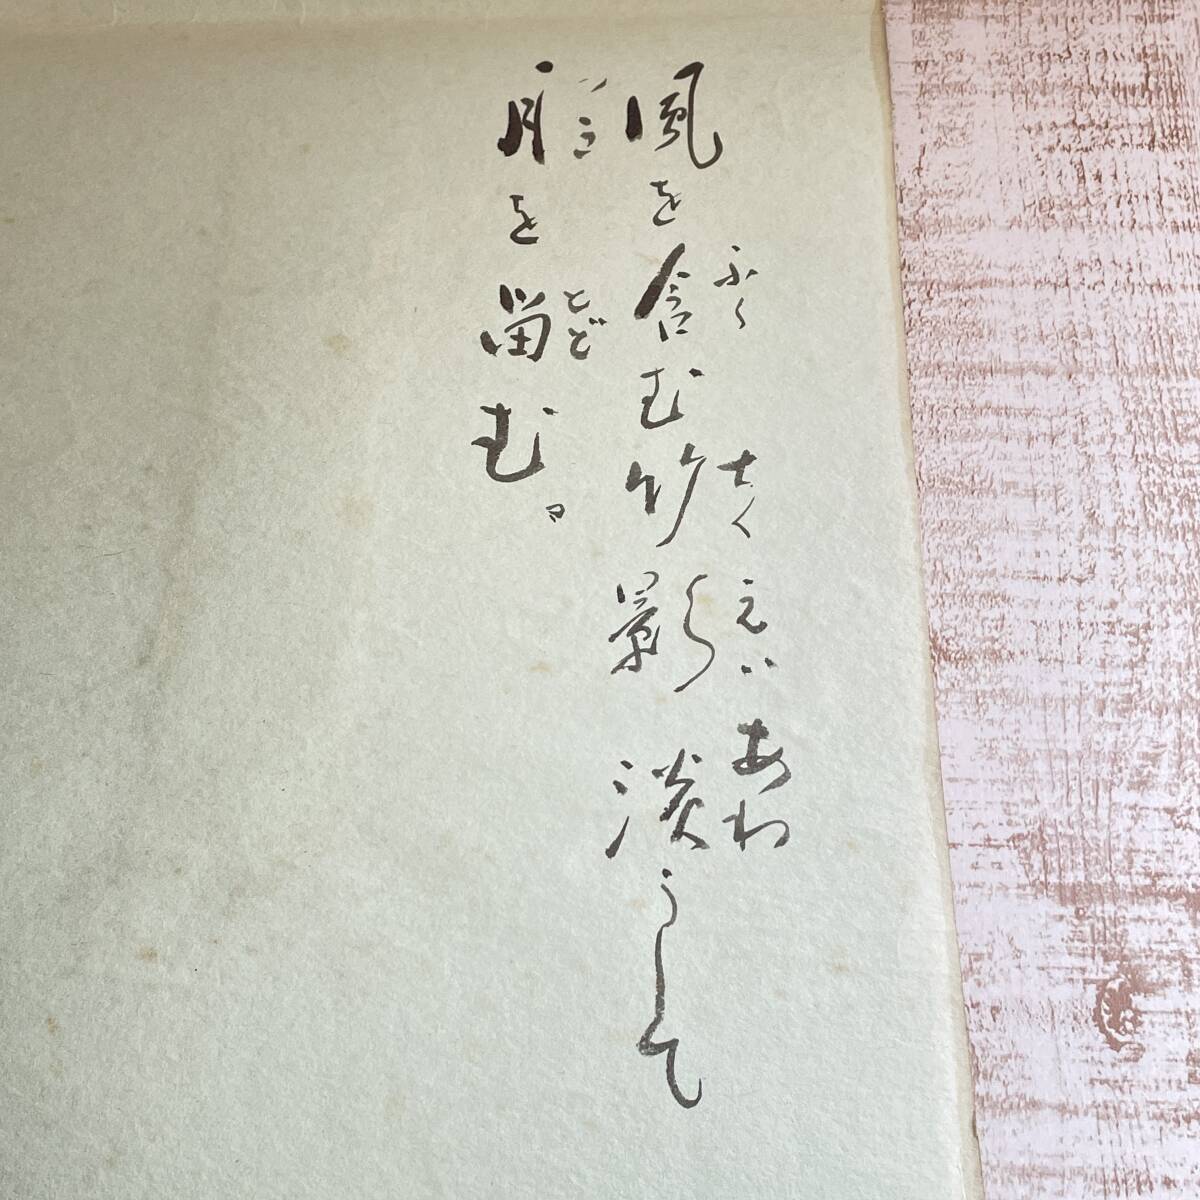 ふく ちくえい あわ
風を含む竹影淡うして
とど
月を畄む。